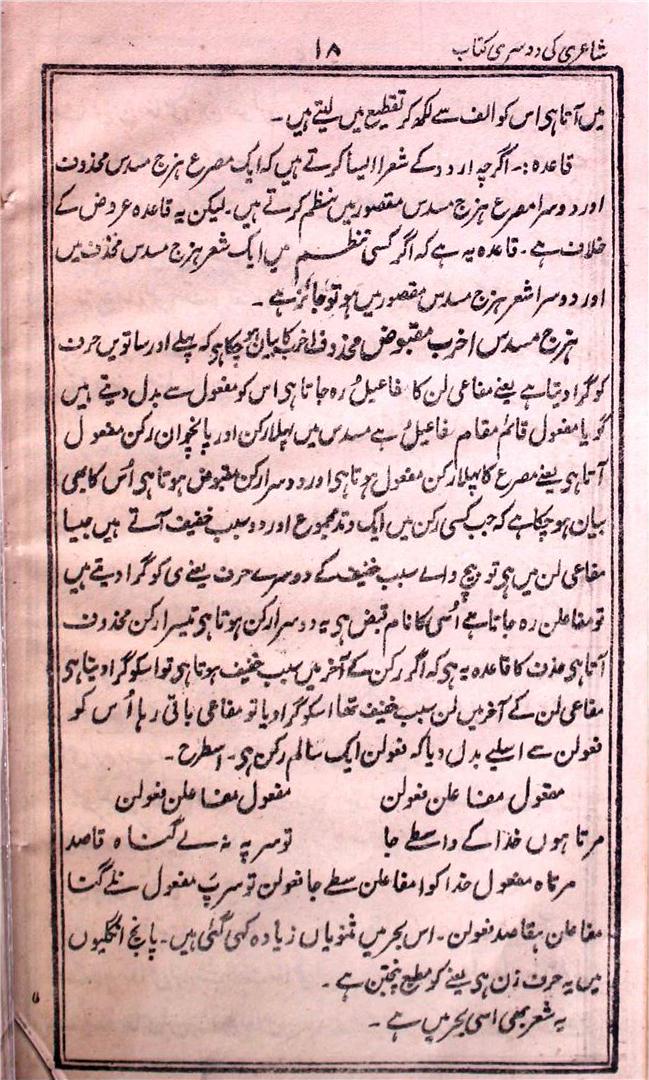 شاعری کی دوسری کتاب
۱۸
میں آتا ہی اس کو الف سے لکھ کر تقطیع میں لیتے ہیں۔
قاعدہ:۔ اگرچہ اردو کے شعرا ایسا کرتے ہیں کہ ایک مصرع ہزج مسدس محذوف
اور دوسرا مصرع ہزج مسدس مقصور میں نظم کرتے ہیں۔ لیکن یہ قاعدہ عروض کے
خلاف ہے۔ قاعدہ یہ ہے کہ اگر کسی نظم میں ایک شعر ہزج مسدس محذف میں
اور دوسرا شعر ہزج مسدس مقصور میں ہو تو جائز ہے۔
ہزج مسدس اخرب مقبوض محذوف اخرب کا بیان ہو چکا ہی کہ پہلے اور ساتویں حرف
کو گرا دیتا ہے یعنے مفاعی لن کا فاعیلُ رہ جاتا ہی اس کو مفعول سے بدل دیتے ہیں
گویا مفعول قائم مقام فاعیلُ ہے مسدس میں پہلا رکن اور پانچوان رکن مفعول
آتا ہی یعنے مصرع کا پہلا رکن مفعول ہوتا ہی اور دوسرا رکن مقبوض ہوتا ہی اُس کا بھی
بیان ہو چکا ہے کہ جب کسی رکن میں ایک وتد مجموع اور دو سبب خفیف آتے ہیں جیسا
مفاعی لن میں ہی تو بیچ والے سبب خفیف کے دوسرے حرف یعنے ی کو گرا دیتے ہیں
تو مفاعلن رہ جاتا ہے اُسی کا نام قبض ہی یہ دوسرا رکن ہوتا ہی تیسرا رکن محذوف
آتا ہی حذف کا قاعدہ یہ ہی کہ اگر رکن کے آخر میں سبب خفیف ہوتا ہی تو اسکو گرا دیتا ہی
مفاعی لن کے آخر میں لن سبب خفیف تھا اسکو گرا دیا تو مفاعی باقی رہا اُس کو
فعولن سے اسلیے بدل دیا کہ فعولن ایک سالم رکن ہی۔ اسطرح۔
مفعول مفاعلن فعولن مفعول مفاعلن فعولن
مرتا ہوں خدا کے واسطے جا تو سر پہ نہ لے گناہ قاصد
مرتاہ مفعول خدا کوا مفاعلن سطے جا فعولن تو سرپَ مفعول نلے گنا
مفاعلن ہقاصد فعولن۔ اس بحر میں مثنویاں زیادہ کہی گئی ہیں۔ پانچ انگلیوں
میں یہ حرف زن ہی یعنے کو مطیع پنجتن ہے۔
یہ شعر بھی اسی بحر میں ہے۔